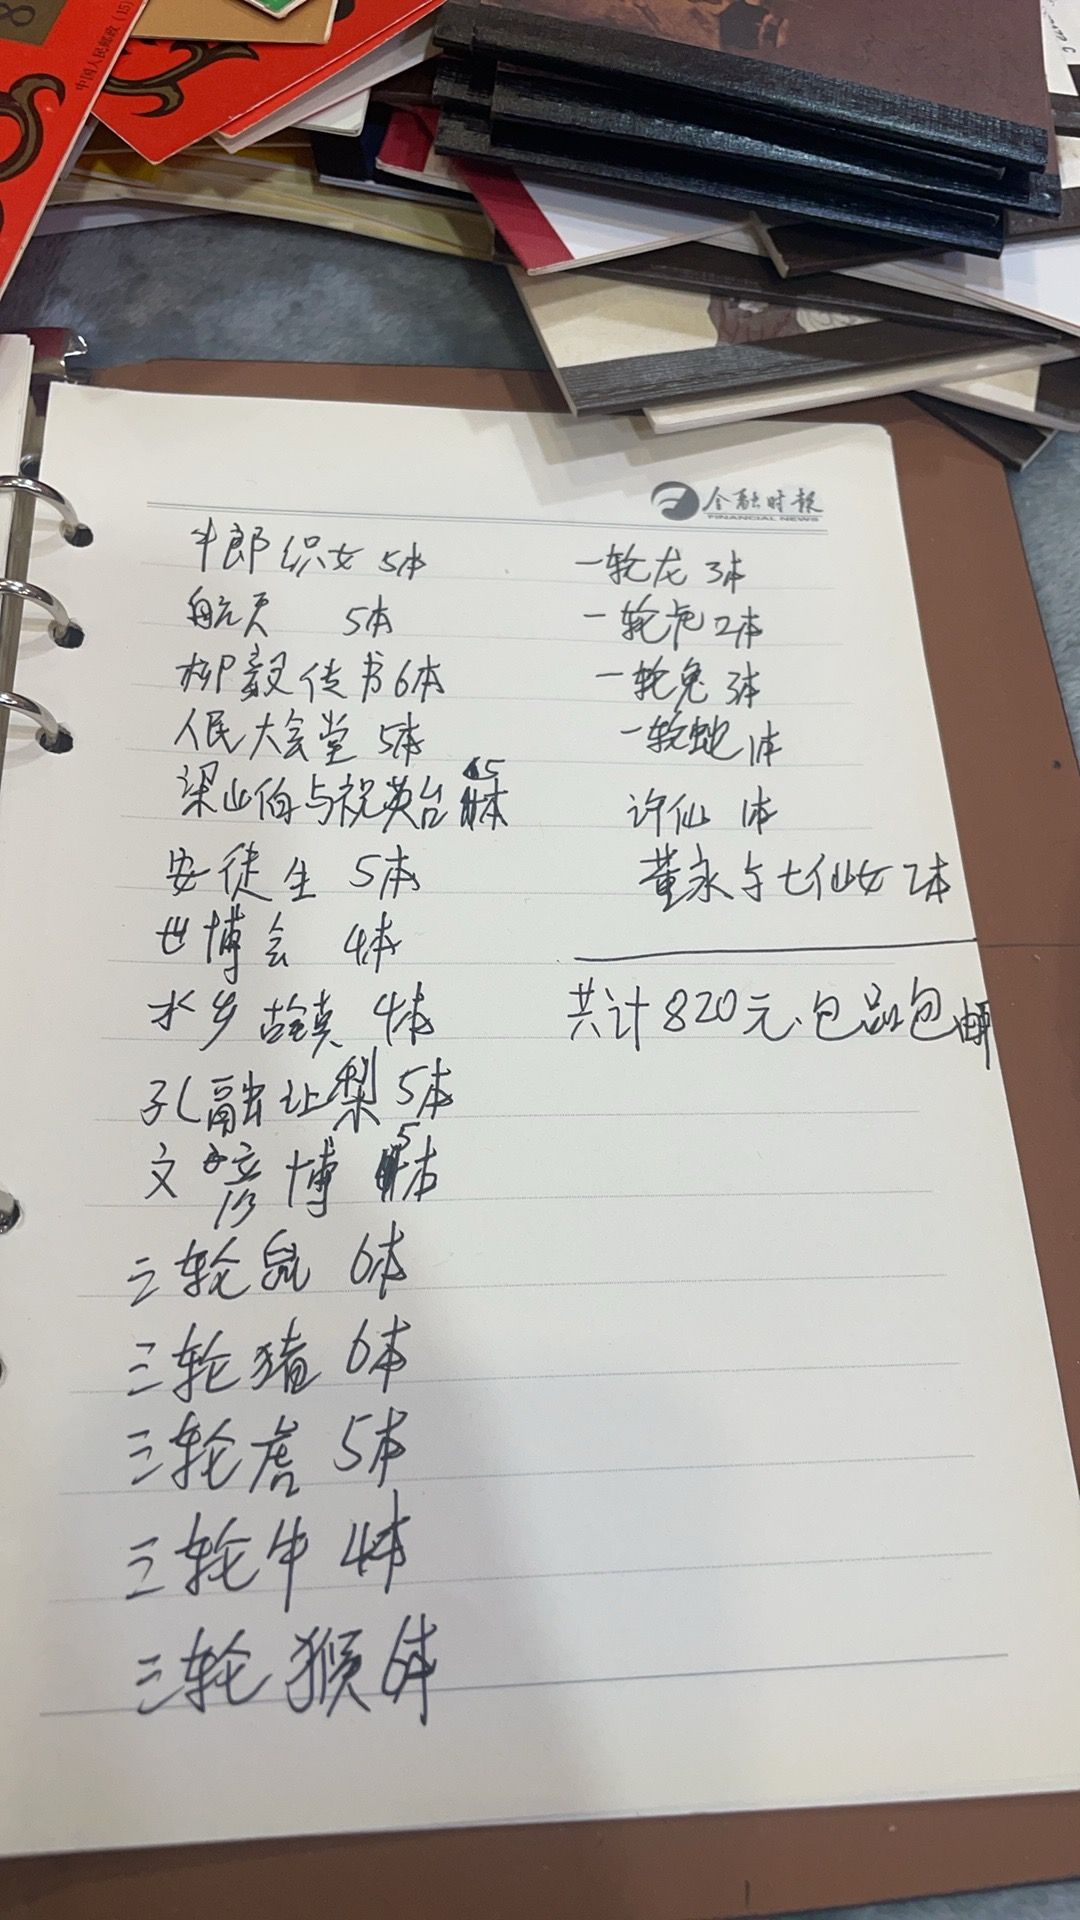 中国人民邮政(15)
金融时报
FINANCIAL NEWS
牛郎织女 5本
航天 5本
柳毅传书 6本
人民大会堂 5本
梁山伯与祝英台 5本
安徒生 5本
世博会 4本
水乡古镇 4本
孔融让梨 5本
文彦博 5本
三轮鼠 6本
三轮猪 6本
三轮虎 5本
三轮牛 4本
三轮猴 6本
一轮龙 3本
一轮虎 2本
一轮兔 3本
一轮蛇 1本
许仙 1本
董永与七仙女 2本
共计820元、包品包邮